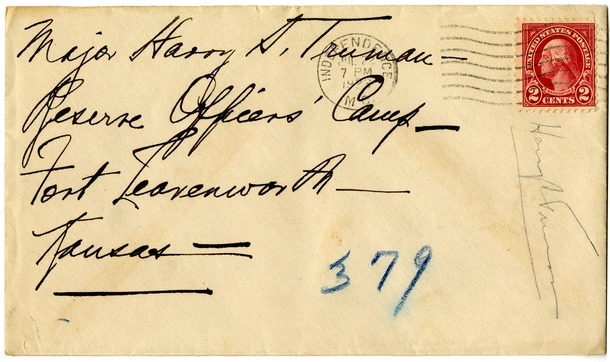 Major Harry S. Truman—
Reserve Officers' Camp—
Fort Leavenworth—
Kansas—
INDEPENDENCE
JUL
7 PM
19
M
UNITED STATES POSTAGE
2 CENTS 2
379
Harry Truman